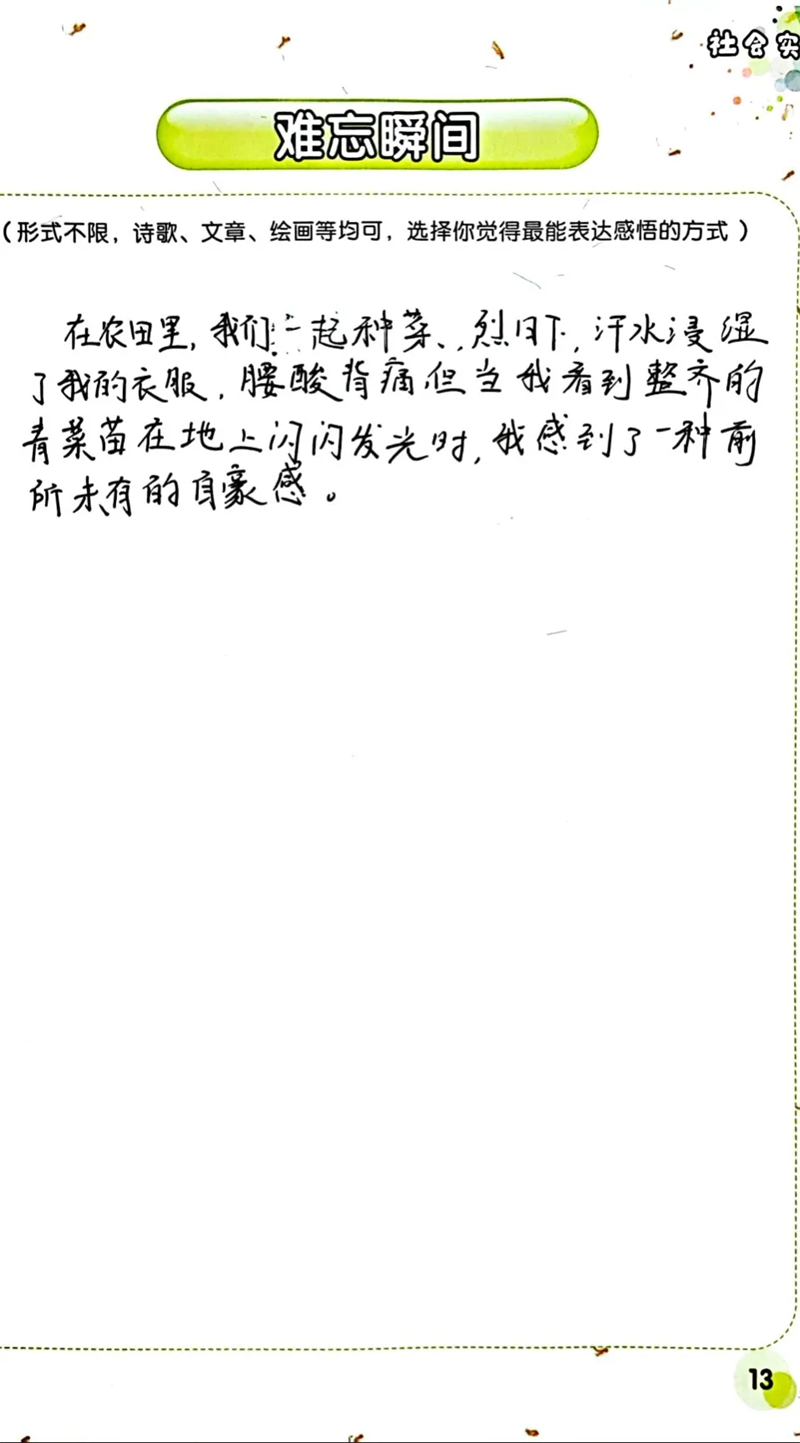 社会实
难忘瞬间
(形式不限，诗歌、文章、绘画等均可，选择你觉得最能表达感悟的方式)
在农田里，我们一起种菜、烈日下，汗水浸湿
了我的衣服，腰酸背痛但当我看到整齐的
青菜苗在地上闪闪发光时，我感到了一种前
所未有的自豪感。
13